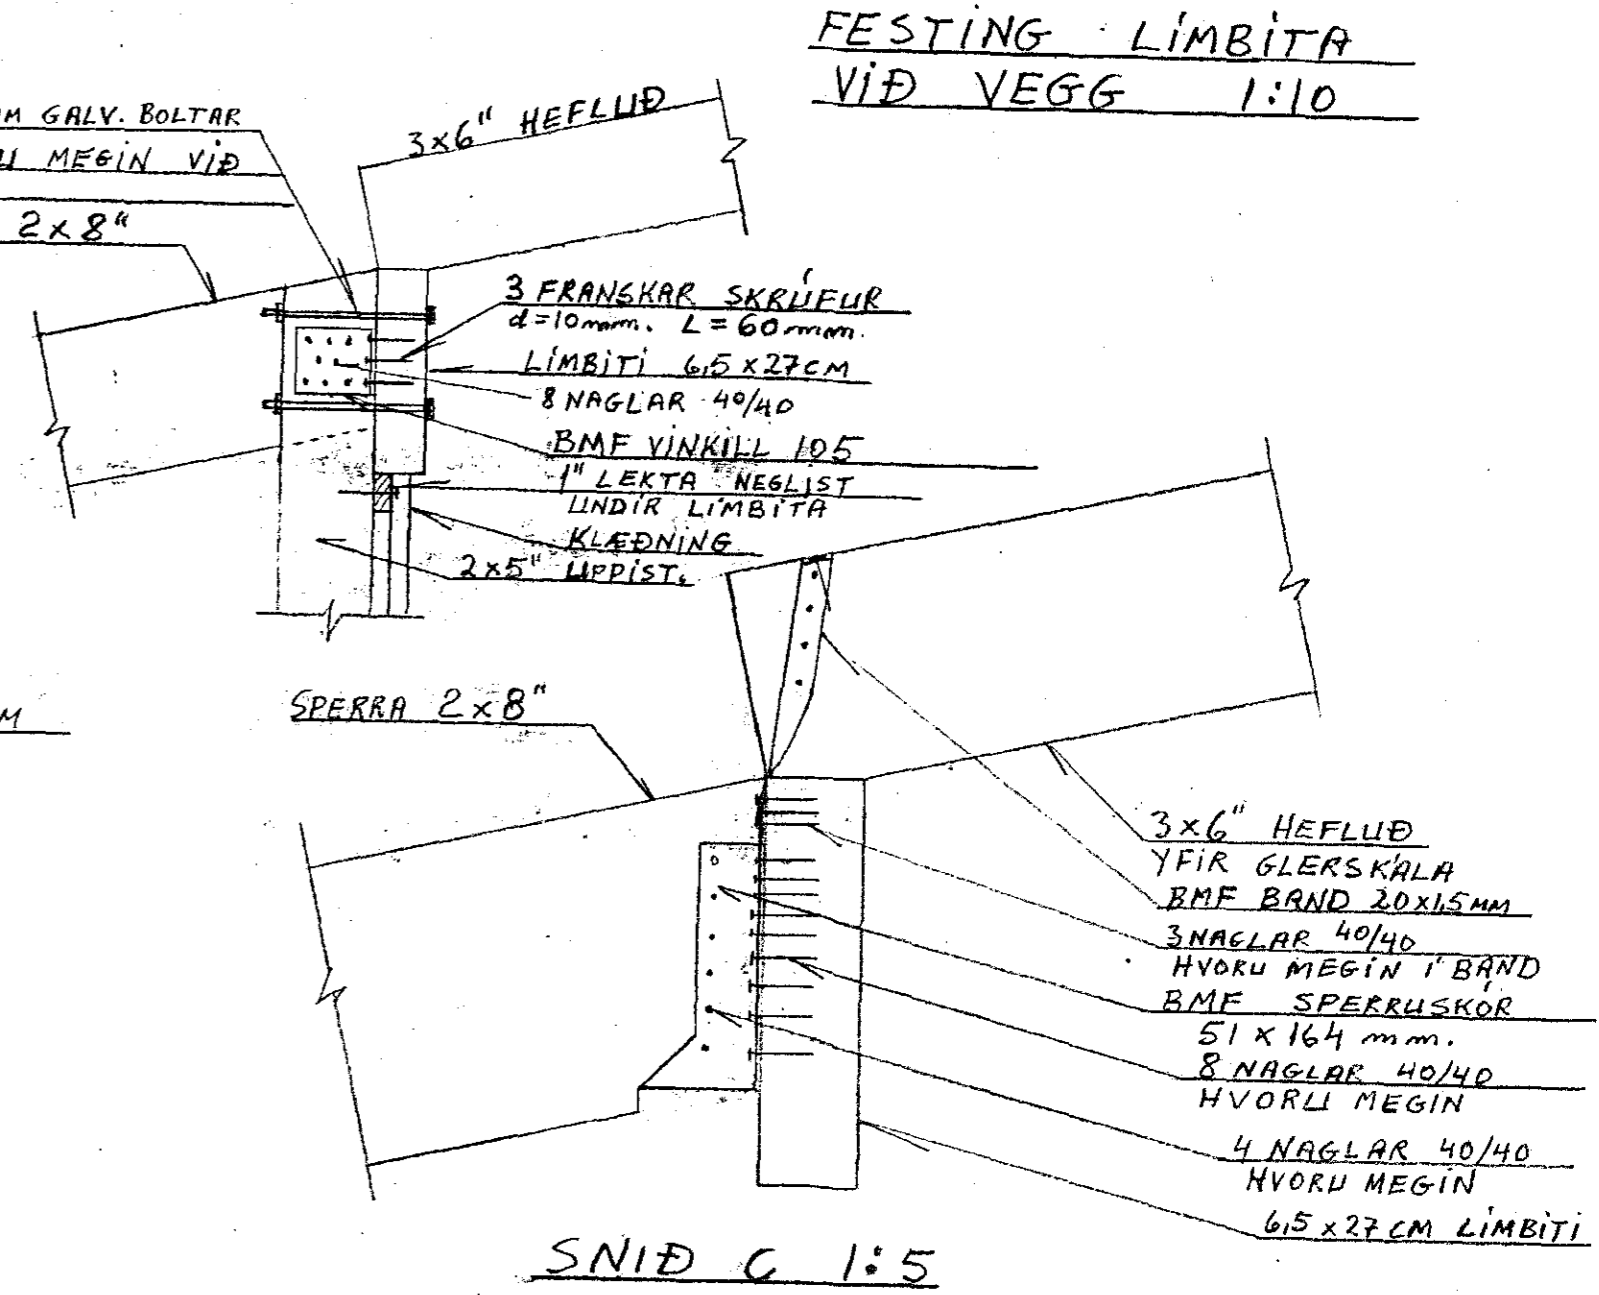 FESTING LÍMBITA
VIÐ VEGG 1:10
GALV. BOLTAR
MEGIN VIÐ
2x8"
3x6" HEFLUÐ
3 FRANSKAR SKRÚFUR
d=10mm. L=60mm.
LÍMBITI 6,5 x 27CM
8 NAGLAR 40/40
BMF VINKILL 105
1" LEKTA NEGLIST
UNDIR LÍMBITA
KLÆÐNING
2x5" UPPIST.
M
SPERRA 2x8"
3x6" HEFLUÐ
YFIR GLERSKÁLA
BMF BAND 20x1,5MM
3 NAGLAR 40/40
HVORU MEGIN Í BAND
BMF SPERRUSKÓR
51 x 164 mm.
8 NAGLAR 40/40
HVORU MEGIN
4 NAGLAR 40/40
HVORU MEGIN
6,5 x 27 CM LÍMBITI
SNIÐ C 1:5